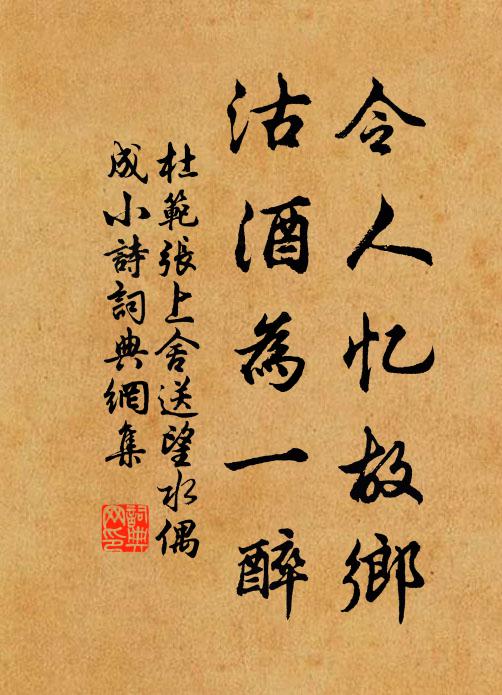 令人忆故鄉
沽酒為一醉
杜範張上舍送望水偶
成小詩詞典網集
詞典
网印